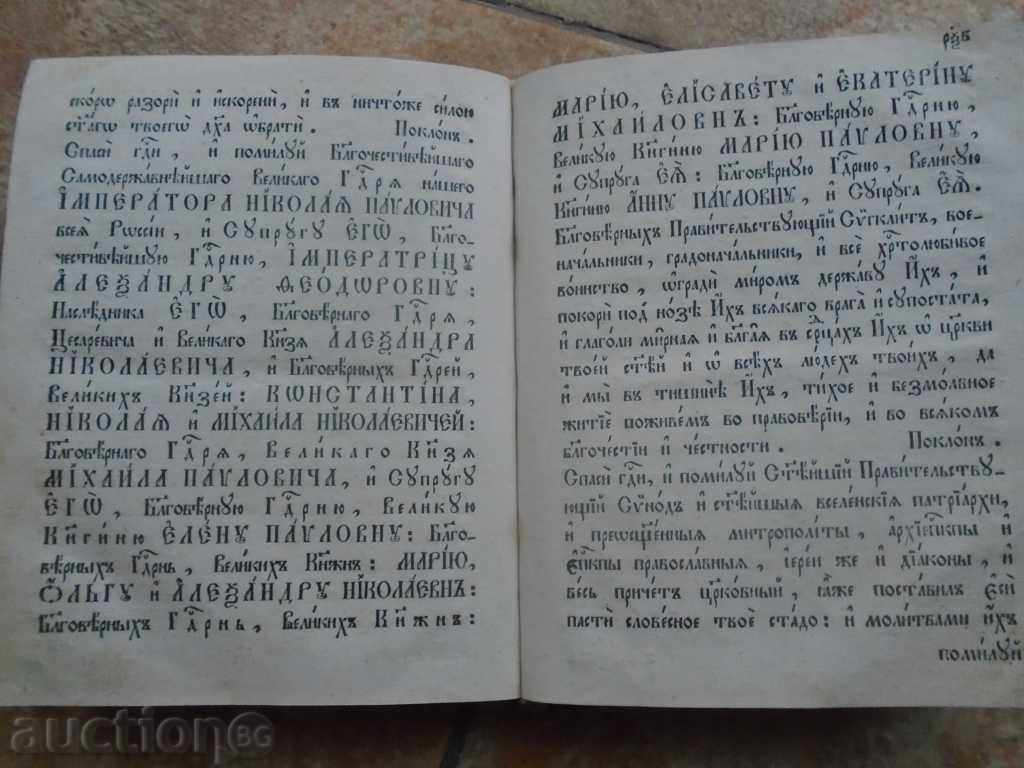 скорѡ разорѝ и҆ и҆скоренѝ, и҆ въ ничто́же си́лою
ст҃а́гѡ твоегѡ̀ дх҃а ѡ҆братѝ. Покло́нъ.
Спасѝ гдⷭ҇и, и҆ поми́лꙋй Бл҃гочести́вѣйшаго
Самодержа́внѣйшаго Вели́каго Гдⷭ҇рѧ на́шего
І҆МПЕРА́ТОРА НІКОЛА́Ѧ ПА́ѴЛОВИЧА
всеѧ̀ Рѡссі́и, и҆ Сꙋпрꙋ́гꙋ Є҆ГѠ̀, Бл҃го-
чести́вѣйшꙋю Гдⷭ҇рню, І҆МПЕРАТРІ́ЦꙊ
А҆ЛЕѮА́НДРꙊ ѲЕО́ДѠРОВНꙊ:
Наслѣ́дника Є҆ГѠ̀, Бл҃говѣ́рнаго Гдⷭ҇рѧ,
Цеса́ревича и҆ Вели́каго Кн҃зѧ А҆ЛЕѮА́НДРА
НІКОЛА́ЕВИЧА, и҆ Бл҃говѣ́рныхъ Гдⷭ҇рей,
Вели́кихъ Кн҃зе́й: КѠНСТАНТІ́НА,
НІКОЛА́Ѧ и҆ МІХАИ́ЛА НІКОЛА́ЕВИЧЕЙ:
Бл҃говѣ́рнаго Гдⷭ҇рѧ, Вели́каго Кн҃зѧ
МІХАИ́ЛА ПА́ѴЛОВИЧА, и҆ Сꙋпрꙋ́гꙋ
Є҆ГѠ̀, Бл҃говѣ́рнꙋю Гдⷭ҇рню, Вели́кꙋю
Кн҃ги́ню Є҆ЛЕ́НꙊ ПА́ѴЛОВНꙊ: Бл҃го-
вѣ́рныхъ Гдⷭ҇рнь, Вели́кихъ Кн҃жнъ: МАРІ́Ю,
Ѻ҆́ЛЬГꙊ и҆ А҆ЛЕѮА́НДРꙊ НІКОЛА́ЕВНЪ:
Бл҃говѣ́рныхъ Гдⷭ҇рнь, Вели́кихъ Кн҃жнъ:
МАРІ́Ю, Є҆ЛІСАВЕ́ТꙊ и҆ Є҆КАТЕРІ́НꙊ
МІХАИ́ЛОВНЪ: Бл҃говѣ́рнꙋю Гдⷭ҇рню,
Вели́кꙋю Кн҃ги́ню МАРІ́Ю ПА́ѴЛОВНꙊ,
и҆ Сꙋпрꙋ́га Є҆Ѧ̀: Бл҃говѣ́рнꙋю Гдⷭ҇рню, Вели́кꙋю
Кн҃ги́ню А҆́ННꙊ ПА́ѴЛОВНꙊ, и҆ Сꙋпрꙋ́га Є҆Ѧ̀.
Бл҃говѣ́рныхъ Прави́тельствꙋющій Сѷгкли́тъ, вое-
нача́льники, градонача́льники, и҆ всѐ хрⷭ҇толюби́вое
во́инство, ѡ҆градѝ ми́ромъ держа́вꙋ И҆́хъ, и҆
покорѝ под̾ но́зѣ И҆́хъ всѧ́каго врага̀ и҆ сꙋпоста́та,
и҆ глаго́ли ми́рнаѧ и҆ бл҃га́ѧ въ срⷣца́хъ И҆́хъ ѡ҆ цр҃кви
твое́й ст҃ѣ́й и҆ ѡ҆ всѣ́хъ лю́дехъ твои́хъ, да
и҆ мы̀ въ тишинѣ̀ И҆́хъ, ти́хое и҆ безмо́лвное
житїѐ поживе́мъ во правовѣ́рїи, и҆ во всѧ́комъ
бл҃гоче́стїи и҆ че́стности. Покло́нъ.
Спасѝ гдⷭ҇и, и҆ поми́лꙋй Ст҃ѣ́йшїй Прави́тельствꙋ-
ющїй Сѷно́дъ и҆ ст҃ѣ́йшыѧ вселе́нскїѧ патрїа́рхи,
и҆ преѡсщ҃е́нныѧ митрополі́ты, а҆рхїепⷭ҇кпы и҆
є҆пⷭ҇кпы правосла́вныѧ, і҆ере́и же и҆ дїа́коны, и҆
ве́сь при́четъ цр҃ко́вный, ꙗ҆̀же поста́вилъ є҆сѝ
пастѝ слове́сное твоѐ ста́до: и҆ моли́твами и҆́хъ
поми́лꙋй
auction BG